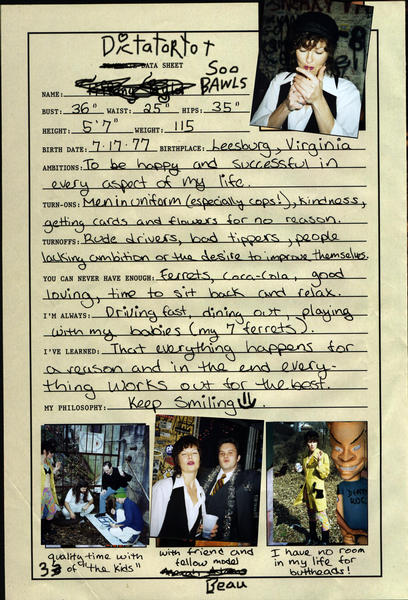 Dictatortot
DATA SHEET
Soo
BAWLS
NAME:
BUST: 36" WAIST: 25" HIPS: 35"
HEIGHT: 5'7" WEIGHT: 115
BIRTH DATE: 7·17·77 BIRTHPLACE: Leesburg, Virginia
AMBITIONS: To be happy and successful in
every aspect of my life.
TURN-ONS: Men in uniform (especially cops!), kindness,
getting cards and flowers for no reason.
TURNOFFS: Rude drivers, bad tippers, people
lacking ambition or the desire to improve themselves.
YOU CAN NEVER HAVE ENOUGH: Ferrets, Coca-Cola, good
loving, time to sit back and relax.
I'M ALWAYS: Driving fast, dining out, playing
with my babies (my 7 ferrets).
I'VE LEARNED: That everything happens for
a reason and in the end every-
thing works out for the best.
MY PHILOSOPHY: Keep Smiling
DEATH
ROC
quality time with
3 of "the kids"
with friend and
fellow model
Beau
I have no room
in my life for
buttheads!